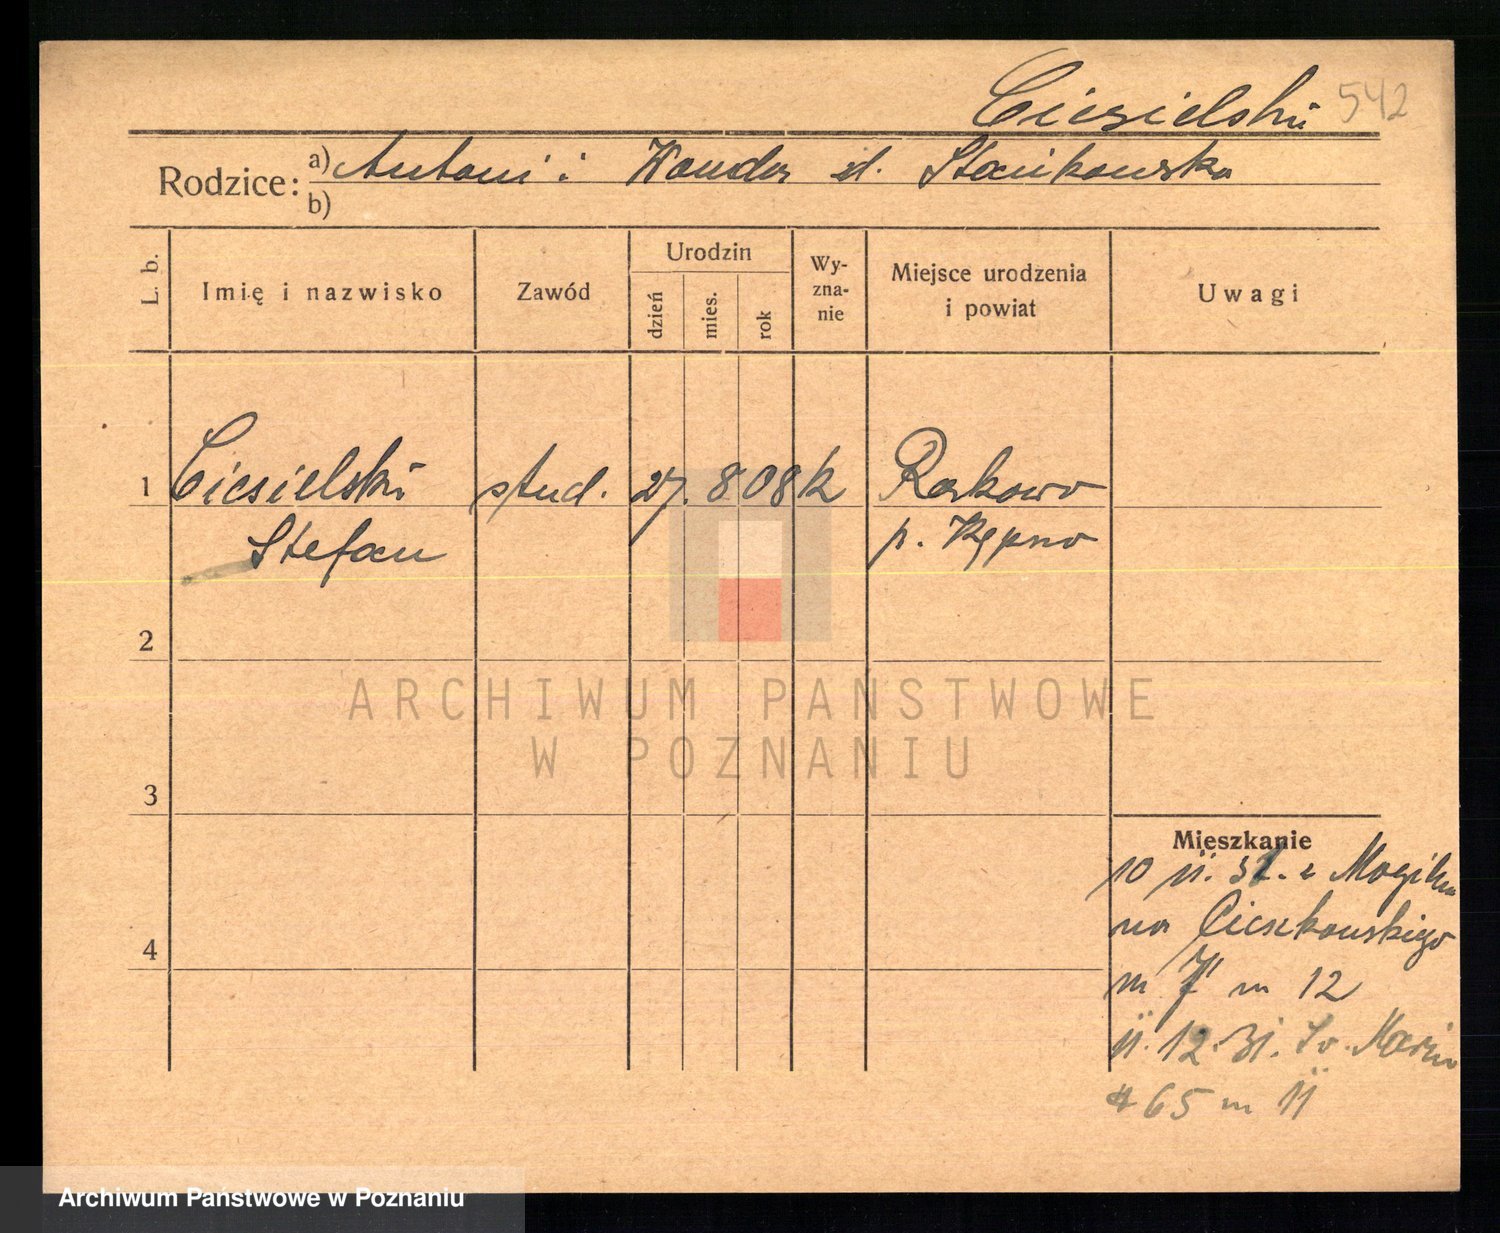 Ciesielski 542
Rodzice: a) Antoni i Wanda d. Stanikowska
b)
L. b. Imię i nazwisko Zawód Urodzin dzień mies. rok Wy-zna-nie Miejsce urodzenia i powiat Uwagi
1 Ciesielski stud. 27. 8 08 k Rakowo
Stefan p. Kępno
2
ARCHIWUM PAŃSTWOWE
W POZNANIU
3
Mieszkanie
10 11. 31. z Mogilna
na Cieszkowskiego
4
m 7 m 12
11. 12. 31. Św. Marcin
65 m 11
Archiwum Państwowe w Poznaniu